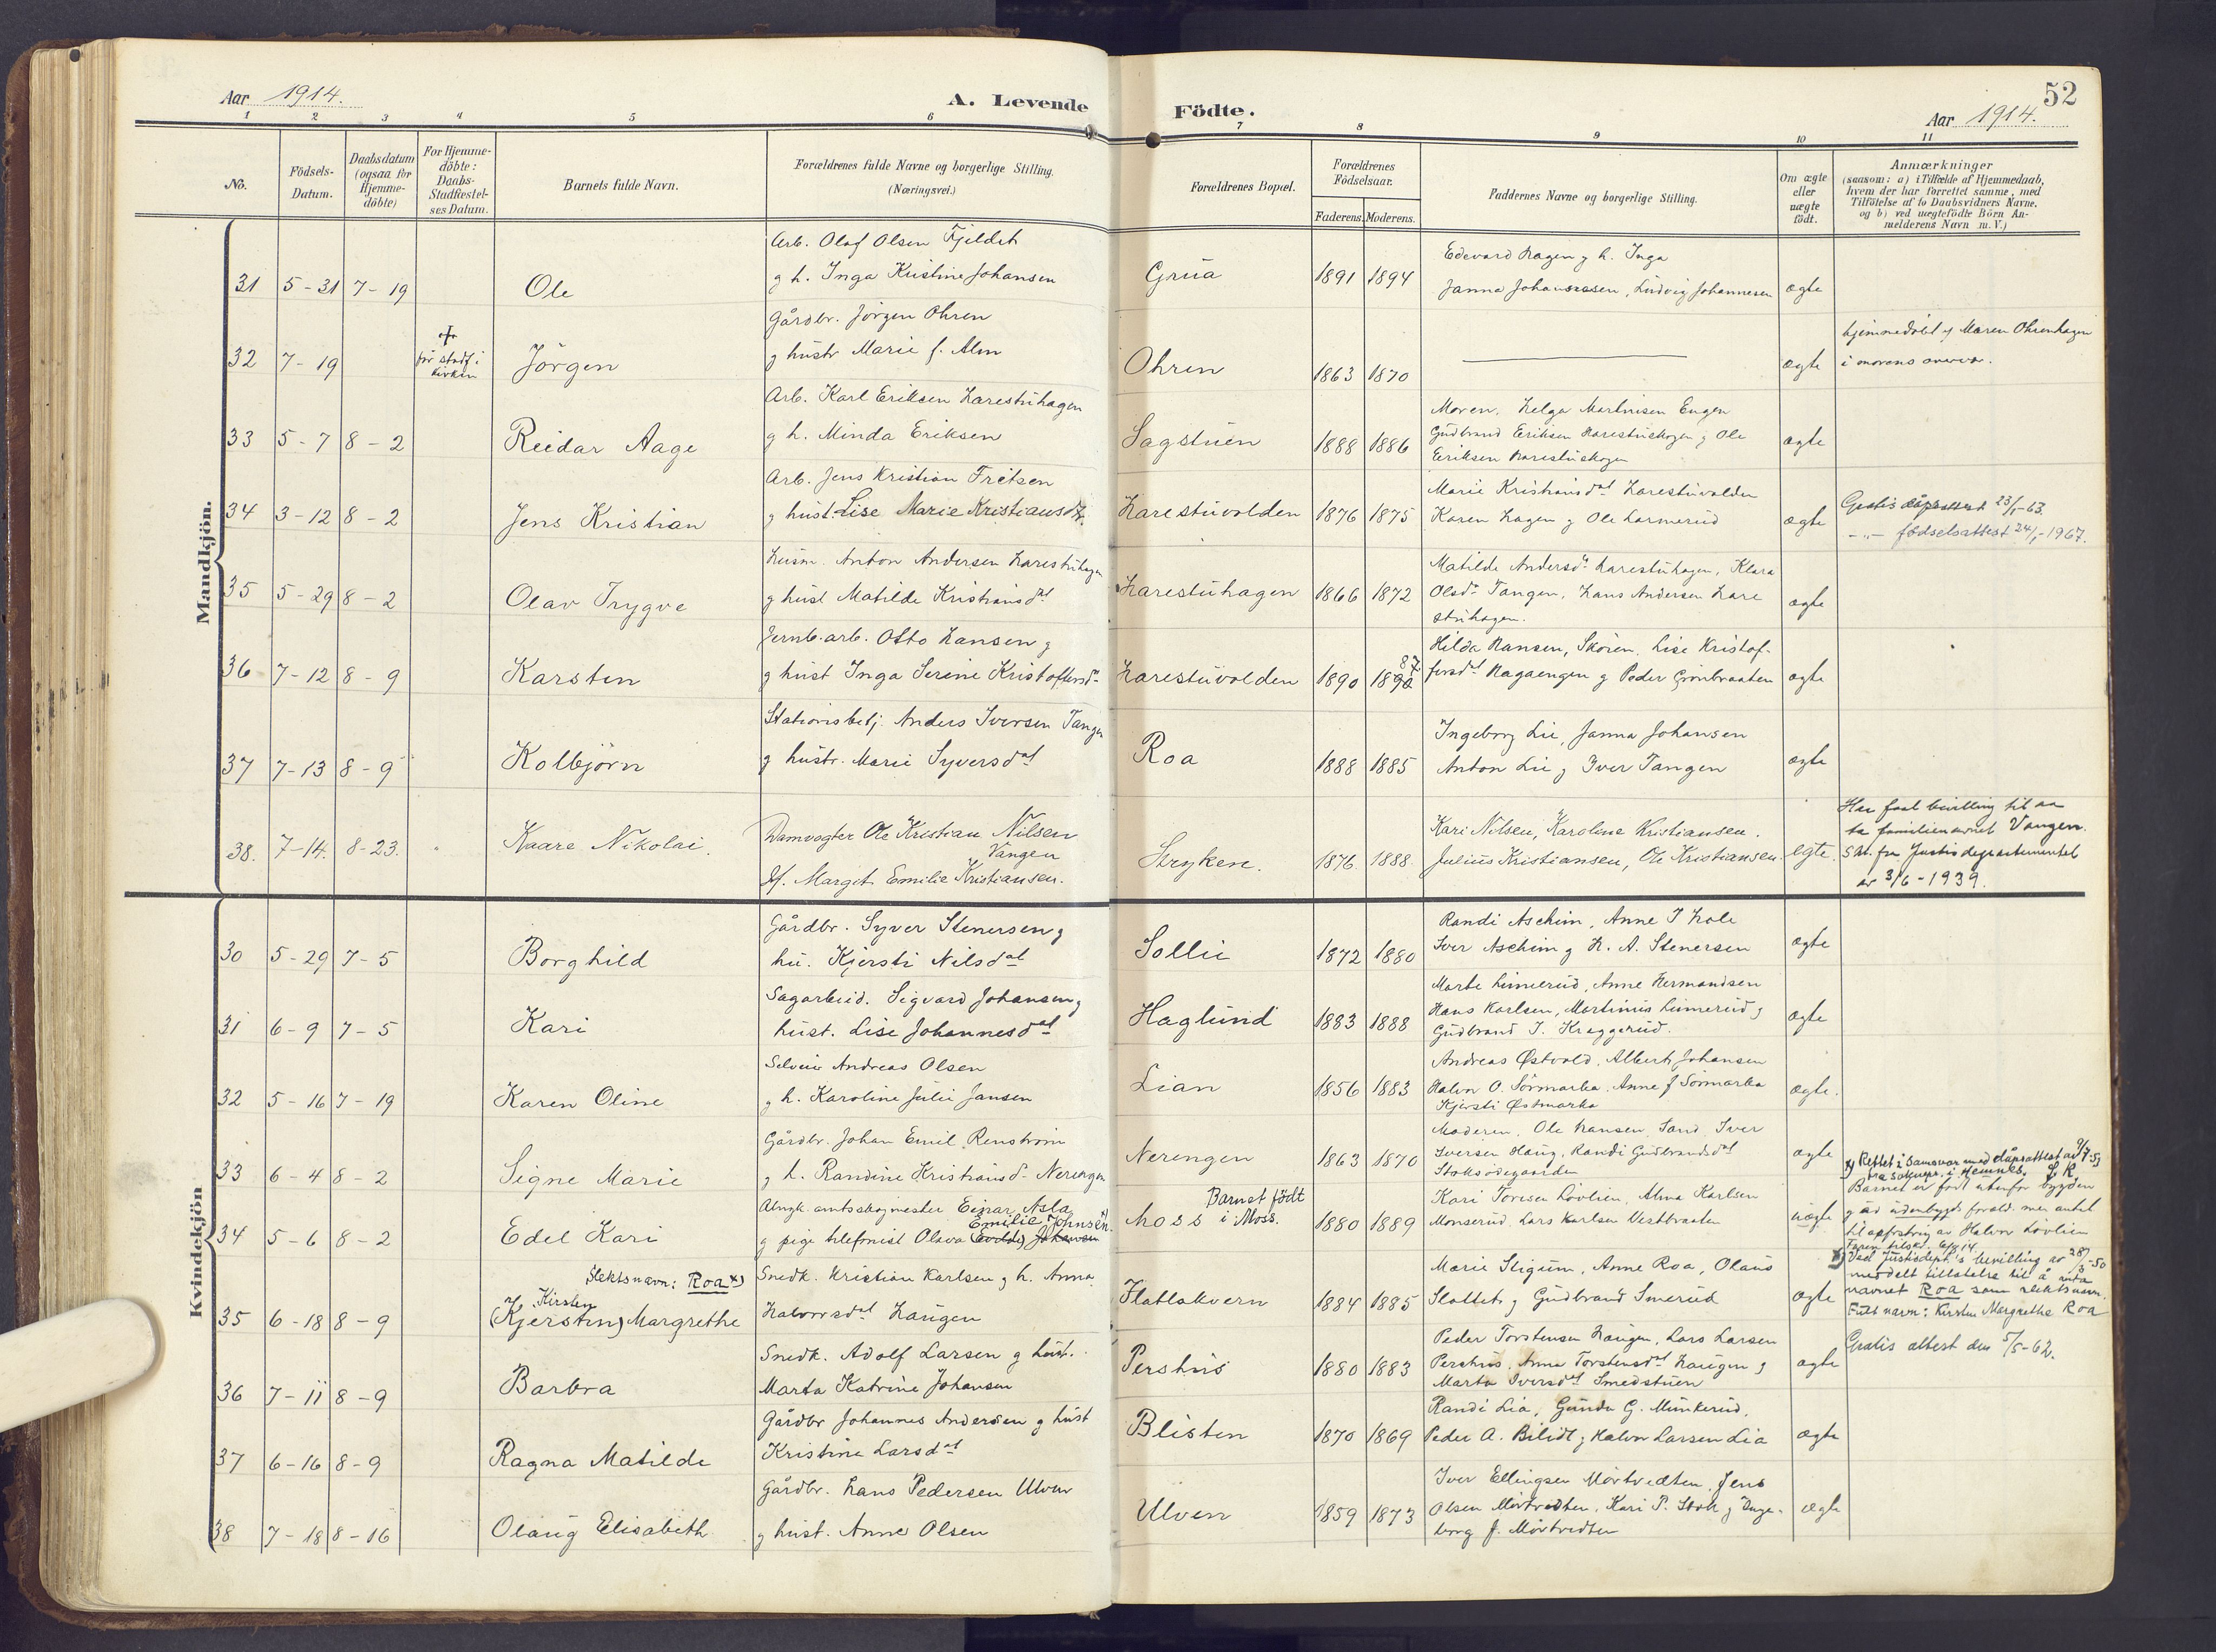 Aar 1914.
A. Levende Födte.
52
Aar 1914.
1 2 3 4 5 6 7 8 9 10 11
No.
Födsels-Datum.
Daabsdatum (ogsaa for Hjemme-döbte)
For Hjemme-döbte: Daabs-Stadfæstel-ses Datum.
Barnets fulde Navn.
Forældrenes fulde Navne og borgerlige Stilling. (Næringsvei.)
Forældrenes Bopæl.
Forældrenes Födselsaar.
Faderens. Moderens.
Faddernes Navne og borgerlige Stilling.
Om ægte eller uægte födt.
Anmærkninger
(saasom: a) i Tilfælde af Hjemmedaab, hvem der har forrettet samme, med Tilföielse af to Daabsvidners Navne. og b) ved uægtefödte Börn An-melderens Navn m. V.)
Mandkjön.
31 5-31 7-19 Ole
Arb. Olaf Olsen Fjeldet
g h. Inga Kristine Johansen
Grua 1891 1894
Edevard Hagen g h. Inga
Janna Johannessen, Ludvig Johannesen
ægte
32 7-19
før stadf. i kirken
Jörgen
Gårdbr. Jörgen Ohren
g hustr Marie f. Alm
Ohren 1863 1870
ægte
hjemmedöbt af Maren Ohrenhagen
i morens overvær.
33 5-7 8-2 Reidar Aage
Arb. Karl Eriksen Harestuhagen
g h. Minda Eriksen
Sagstuen 1888 1886
Moren, Helga Martinsen Engen
Gudbrand Eriksen Harestuskogen g Ole
Eriksen Harestuskogen
ægte
34 3-12 8-2 Jens Kristian
Arb. Jens Kristian Fritsen
g hust. Lise Marie Kristiansdt.
Harestuvolden 1876 1875
Marie Kristiansdat Harestuvolden
Karen Hagen g Ole Harmerud
ægte
Gratis dåpsattest 23/1-63.
-"- fødselsattest 24/1-1967.
35 5-29 8-2 Olav Trygve
Husm. Anton Andersen Harestuhagen
g hust Matilde Kristiansdat
Harestuhagen 1866 1872
Matilde Andersdt Harestuhagen, Klara
Olsdt Tangen, Hans Andersen Hare
stuhagen.
ægte
36 7-12 8-9 Karsten
Jernb.arb. Otto Hansen g
g hust Inga Serine Kristoffersdt
Harestuvolden 1890 1890 87
Hilda Hansen, Skoien, Lise Kristof-
fersdat Hagaengen g Peder Grönbraaten
ægte
37 7-13 8-9 Kolbjörn
Stationsbetj. Anders Iversen Tangen
g hustr. Marie Syversdat
Roa 1888 1885
Ingeborg Lie, Janna Johansen
Anton Lie g Iver Tangen
ægte
38. 7-14. 8-23. Kaare Nikolai.
Damvogter Ole Kristian Nilsen
Vangen
Hf. Margit Emilie Kristiansen.
Stryken. 1876. 1888.
Kari Nilsen, Karoline Kristiansen.
Julius Kristiansen, Ole Kristiansen.
egte.
Har faat bevilling til aa
ta familienavnet Vangen.
Skr. fra Justisdepartementet
av 3/6-1939.
Kvindekjön
30 5-29 7-5 Borghild
Gårdbr. Syver Stenersen g
hu. Kjersti Nilsdat
Sollie 1872 1880
Randi Aschim, Anne I Hole
Iver Aschim g H. A. Stenersen
ægte
31 6-9 7-5 Kari
Sagarbeid. Sigvard Johansen g
hust. Lise Johannesdat
Haglund 1883 1888
Marte Limerud, Anne Hermandsen
Hans Karlsen, Martinius Limerud g
Gudbrand I. Kraggerud.
ægte
32 5-16 7-19 Karen Oline
Selveier Andreas Olsen
g h. Karoline Julie Jansen
Lian 1856 1883
Andreas Østvold, Albert Johansen
Halvor O. Sörmarka, Anne J Sörmarka
Kjersti Østmarka
ægte.
33 6-4 8-2 Signe Marie
Gårdbr. Johan Emil Renström
g h. Randine Kristiansdt Nerengen
Nerengen 1863 1870
Moderen, Ole Hansen Sand, Iver
Iversen Haug, Randi Gudbrandsdat
Stoksödegaarden
ægte
34 5-6 8-2 Edel Kari
Ulngk. amtsskogmester Einar Asla
g pige telefonist Olava (Evilde) Johansen
Emilie Johnsen x)
Moss Barnet födt i Moss.
1880 1889
Kari Toresen Lövlien, Alma Karlsen
Monserud, Lars Karlsen Vestbraaten
uægte
x) Rettet i samsvar med dåpsattest av 9/7-53
fra sokneprt. i Hemnes. S. K.
Barnet er födt utenfor bygden
g av utenbygds foræld. men antat
til opfostring av Halvor Lövlien
Faren tilskr. 6/8 14.
35 6-18 8-9
Slektsnavn: Roa x)
Kirsten
(Kjersten) Margrethe
Snedk. Kristian Karlsen g h. Anna
Halvorsdat Haugen
Flatlakvern 1884 1885
Marie Stigum, Anne Roa, Olaus
Slattet g Gudbrand Smerud
ægte
x) Ved Justisdept's bevilling av 28/3-50
meddelt tillatelse til å anta
navnet Roa som slektsnavn.
Fullt navn: Kirsten Margrethe Roa
36 7-11 8-9 Barbra
Snedk. Adolf Larsen g hust.
Marta Katrine Johansen
Perstuis 1880 1883
Peder Torstensen Haugen, Lars Larsen
Perstuis, Anna Torstensdat Haugen g
Marta Iversdat Smedstuen
ægte
Gratis attest den 5/5-62.
37 6-16 8-9 Ragna Matilde
Gårdbr Johannes Andersen g hust
Kristine Larsdat
Blisten 1870 1869
Randi Lia, Gunda G. Munkerud,
Peder A. Bilidt g Halvor Larsen Lia
ægte
38 7-18 8-16 Olaug Elisabeth
Gårdbr. Hans Pedersen Ulven
g hust. Anne Olsen
Ulven 1859 1873
Iver Ellingsen Mörtvedten, Jens
Olsen Mörtvedten, Kari P. Stok g Inge-
borg J. Mörtvedten
ægte